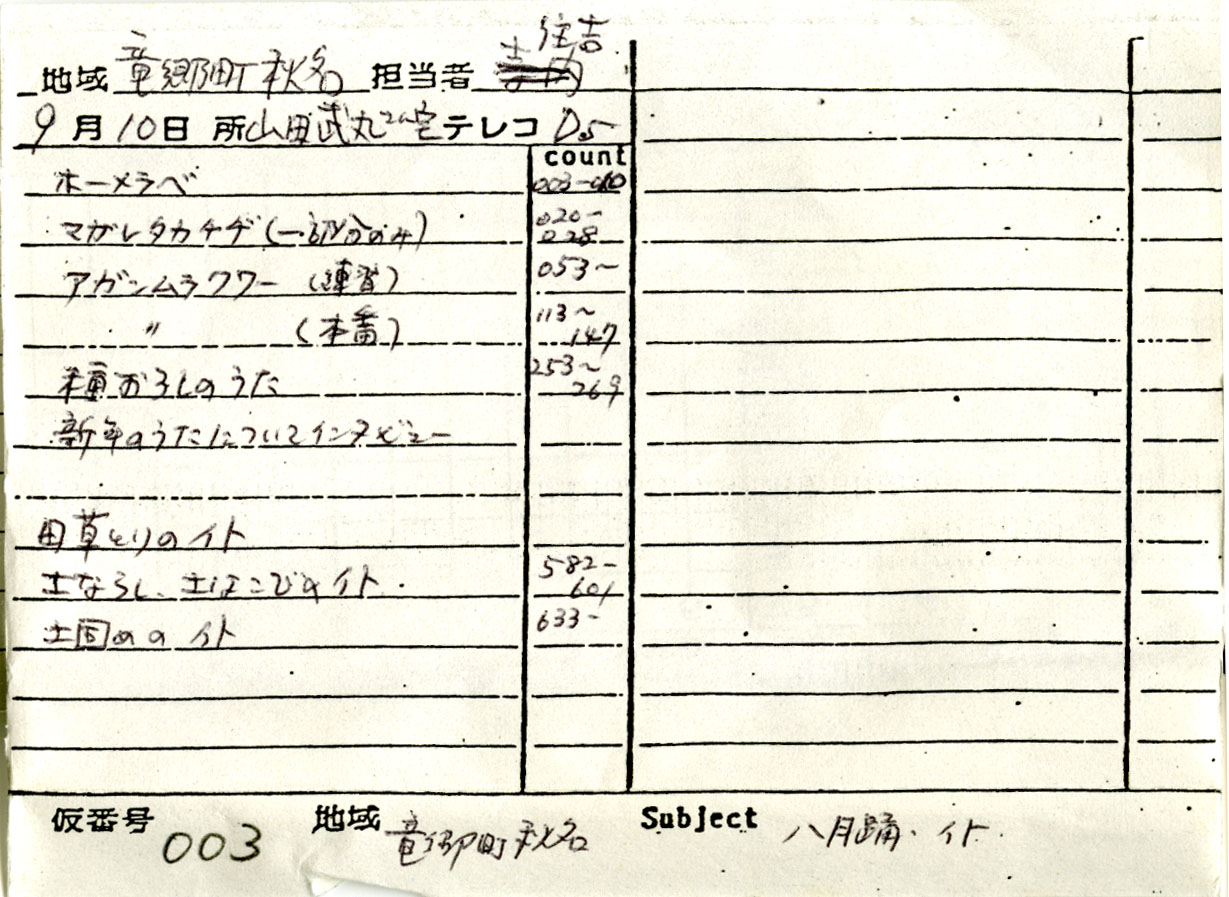 地域 竜郷町秋名 担当者 住吉
9月10日 所 山田武丸さん宅 テレコ D5
count
ホーメラベ 003-010
マガレタカチヂ(一部分のみ) 020-028
アガンムラクワー (練習) 053~
〃 (本番) 113~147
種おろしのうた 253~269
新年のうたについてインタビュー
田草とりのイト
土ならし、土はこびのイト 582-601
土固めのイト 633-
仮番号 003 地域 竜郷町秋名 Subject 八月踊・イト